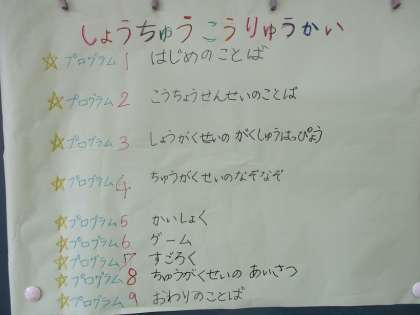 しょうちゅうこうりゅうかい
☆プログラム1 はじめのことば
☆プログラム2 こうちょうせんせいのことば
☆プログラム3 しょうがくせいの がくしゅうはっぴょう
☆プログラム4 ちゅうがくせいのなぞなぞ
☆プログラム5 かいしょく
☆プログラム6 ゲーム
☆プログラム7 すごろく
☆プログラム8 ちゅうがくせいの あいさつ
☆プログラム9 おわりのことば